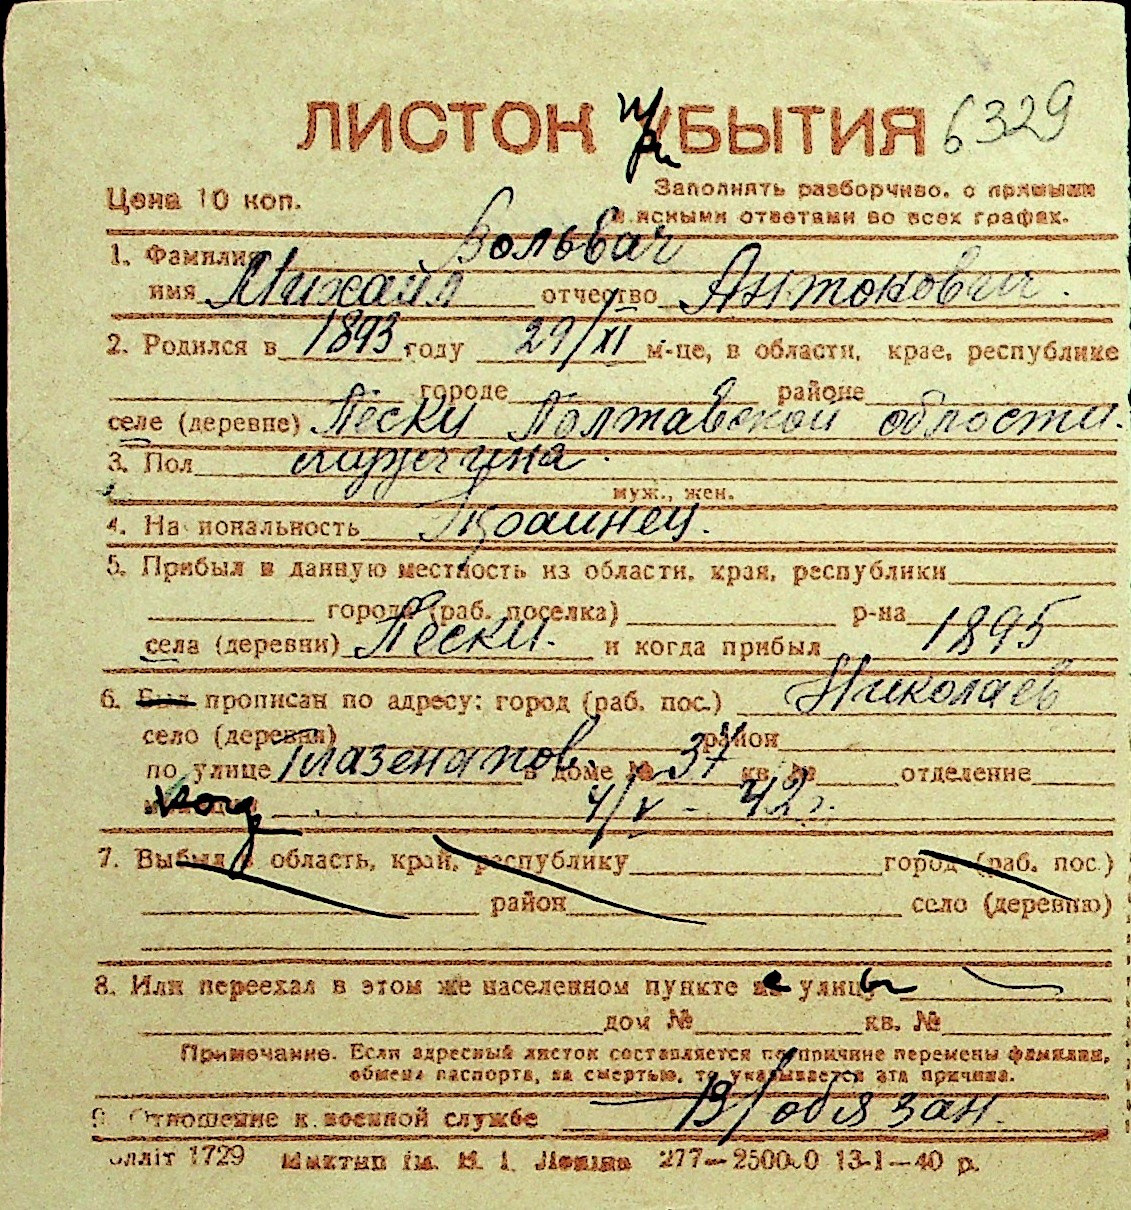 ЛИСТОК при БЫТИЯ 6329
Цена 10 коп. Заполнять разборчиво, с прямыми
и ясными ответами во всех графах.
1. Фамилия Вольвач
имя Михаил отчество Антонович.
2. Родился в 1893 году 29/XI м-це, в области, крае, республике
городе районе
селе (деревне) Пески Полтавской области.
3. Пол мужчина.
муж., жен.
4. Национальность Украинец.
5. Прибыл в данную местность из области, края, республики
города (раб. поселка) р-на
села (деревни) Пески. и когда прибыл 1895
6. Был прописан по адресу: город (раб. пос.) Николаев
село (деревня) район
по улице Глазенапов. в доме № 37 кв. № отделение
когда 4/V - 42 г.
7. Выбыл в область, край, республику город (раб. пос.)
район село (деревню)
8. Или переехал в этом же населенном пункте с улицы
дом № кв. №
Примечание. Если адресный листок составляется по причине перемены фамилии,
обмена паспорта, за смертью, то указывается эта причина.
9. Отношение к военной службе В/обязан.
олліт 1729 277—250000 13-1—40 р.